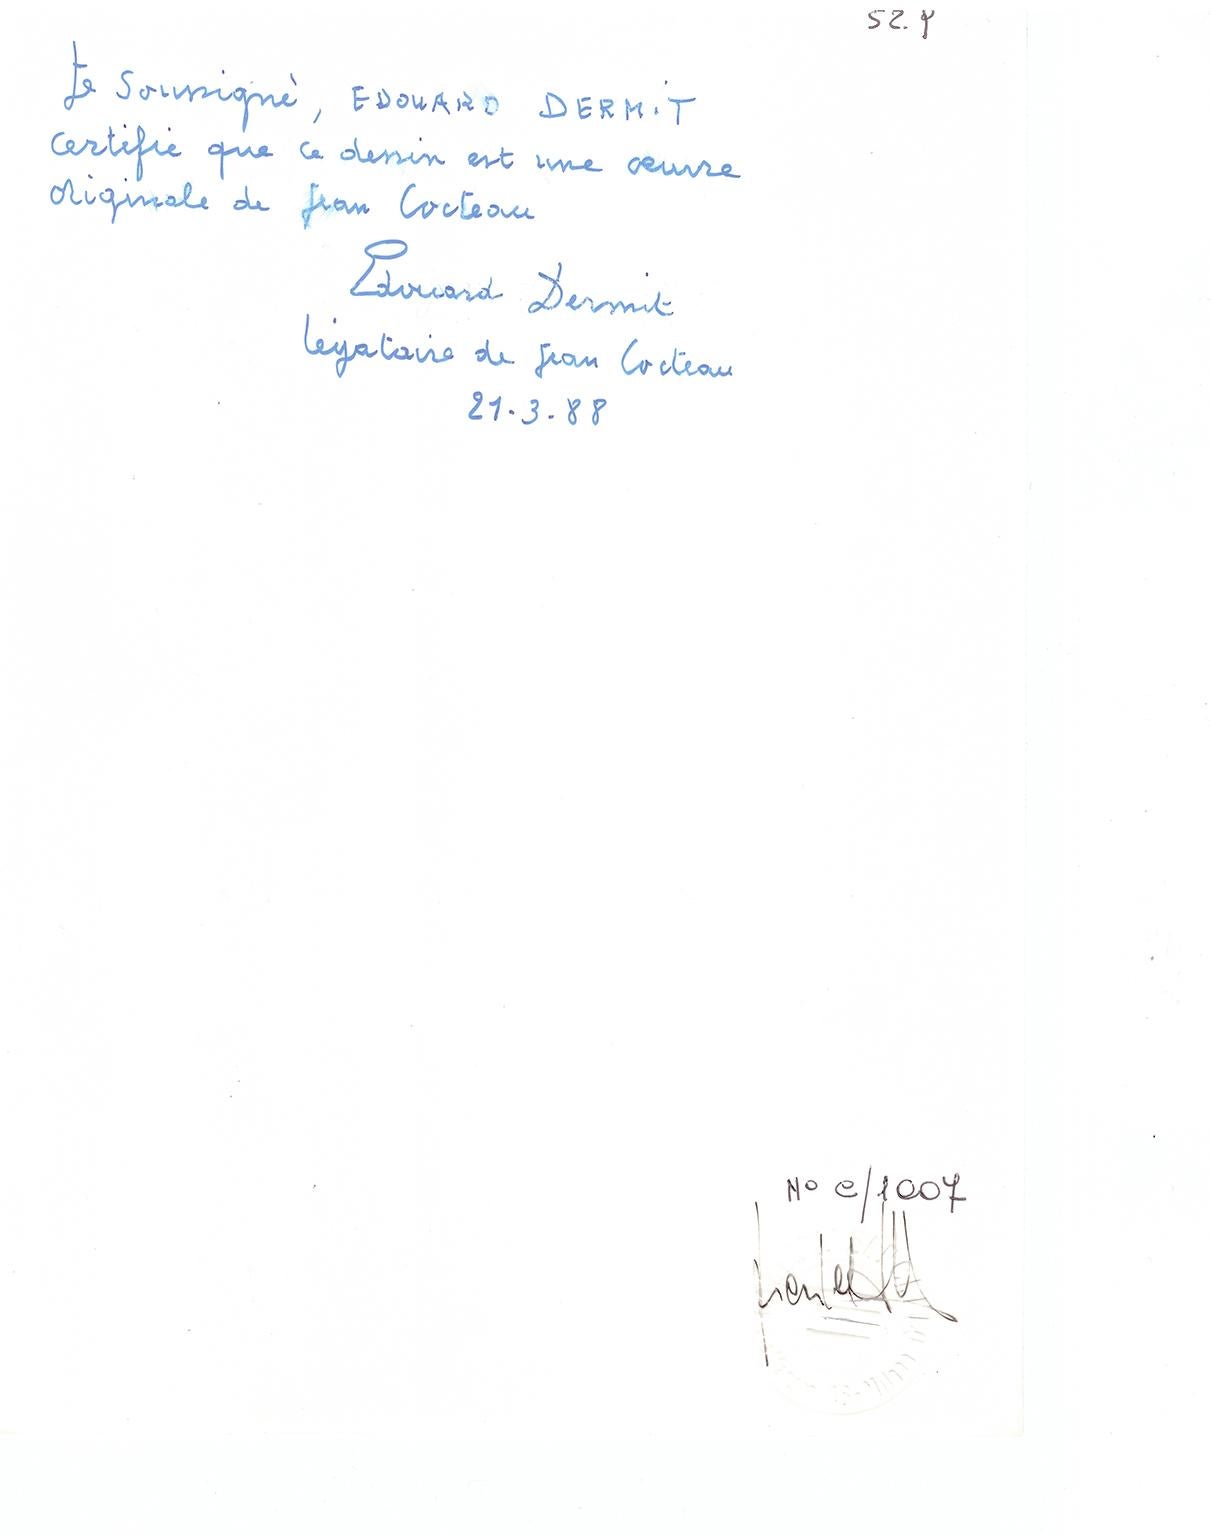 52.9
Je soussigné, EDOUARD DERMIT
certifie que ce dessin est une œuvre
originale de Jean Cocteau
Edouard Dermit
légataire de Jean Cocteau
21.3.88
No e/1007